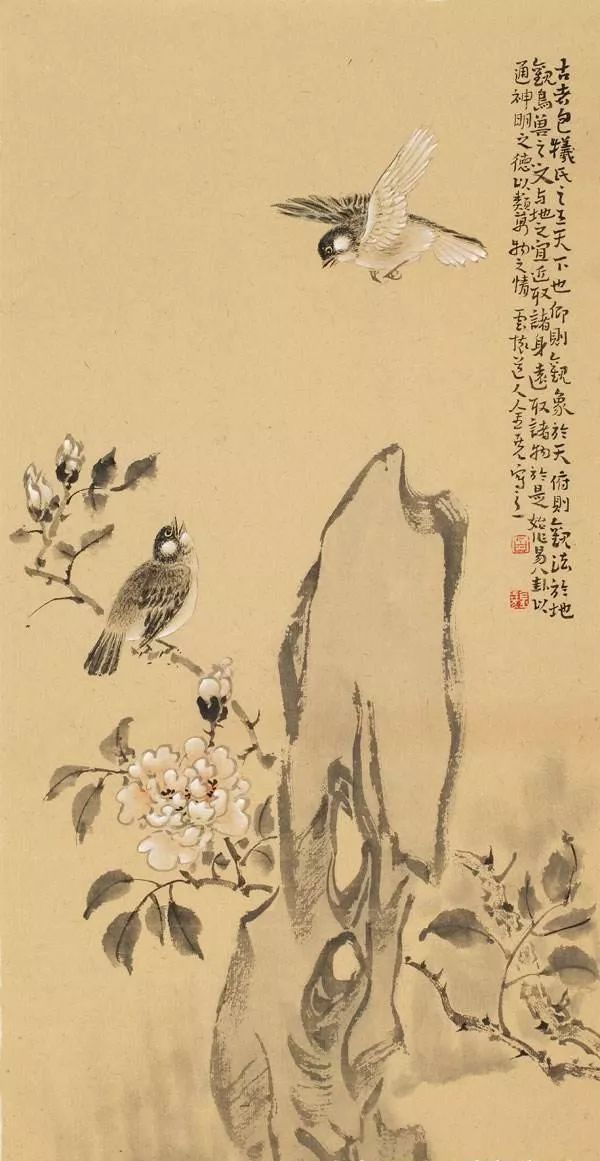 古者包犧氏之王天下也仰則觀象於天俯則觀法於地
觀鳥兽之文与地之宜近取諸身遠取諸物於是始作易八卦以
通神明之德以類萬物之情 道人 寫之